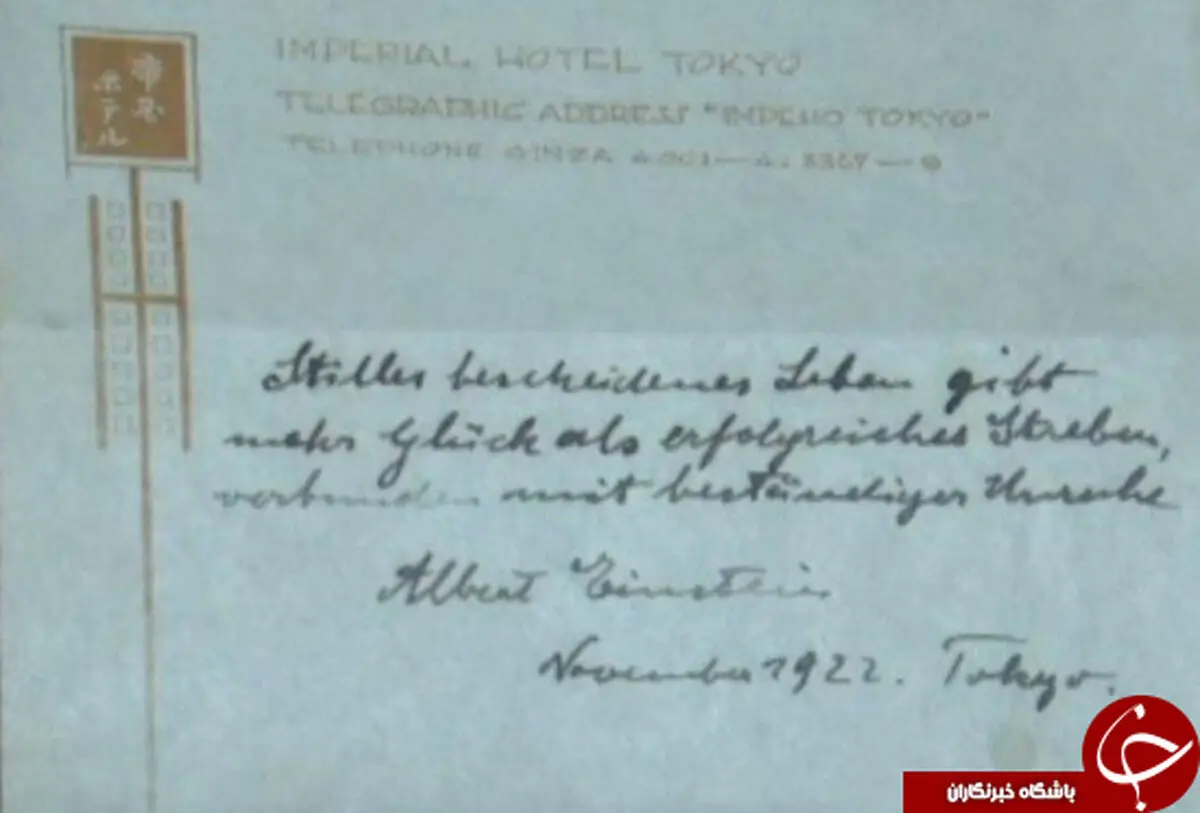 帝国
ホテル
IMPERIAL HOTEL TOKYO
TELEGRAPHIC ADDRESS "IMPEHO TOKYO"
TELEPHONE GINZA
Stilles bescheidenes Leben gibt
mehr Glück als erfolgreiches Streben,
verbunden mit beständiger Unruhe
Albert Einstein
November 1922. Tokyo.
باشگاه خبرنگاران